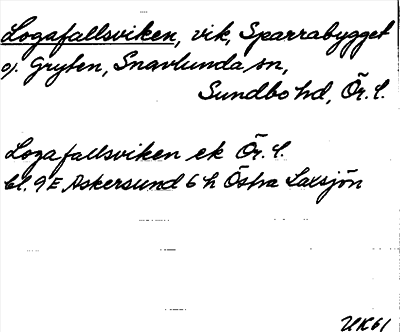 Logafallsviken, vik, Sparrabygget
o. Gryten, Snavlunda sn,
Sundbo hd, Ör. l.
Logafallsviken ek Ör. l.
bl. 9 E Askersund 6 h Östra Laxsjön
UK61